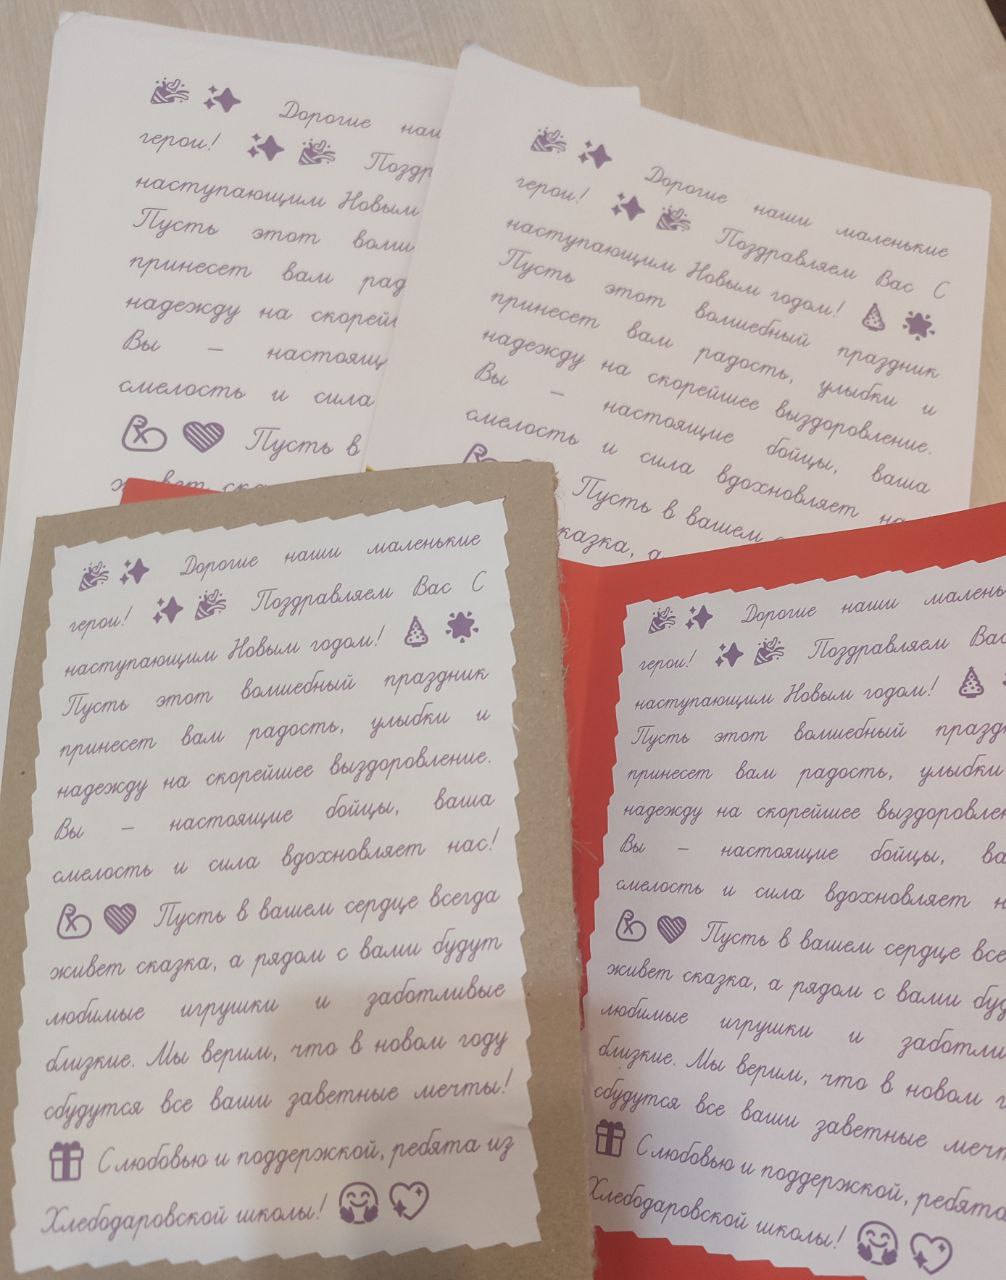 Дорогие наш
герои! Поздр
наступающим Новым
Пусть этот волш
принесет вам рад
надежду на скорей
Вы – настоящ
смелость и сила
Пусть в
живет ска
Дорогие наши маленькие
герои! Поздравляем Вас С
наступающим Новым годом!
Пусть этот волшебный праздник
принесет вам радость, улыбки и
надежду на скорейшее выздоровление.
Вы – настоящие бойцы, ваша
смелость и сила вдохновляет на
Пусть в вашем с
казка, а
Дорогие наши маленькие
герои! Поздравляем Вас С
наступающим Новым годом!
Пусть этот волшебный праздник
принесет вам радость, улыбки и
надежду на скорейшее выздоровление.
Вы – настоящие бойцы, ваша
смелость и сила вдохновляет нас!
Пусть в вашем сердце всегда
живет сказка, а рядом с вами будут
любимые игрушки и заботливые
близкие. Мы верим, что в новом году
сбудутся все ваши заветные мечты!
С любовью и поддержкой, ребята из
Хлебодаровской школы!
Дорогие наши малень
герои! Поздравляем Вас
наступающим Новым годом!
Пусть этот волшебный праздн
принесет вам радость, улыбки
надежду на скорейшее выздоровлен
Вы – настоящие бойцы, ва
смелость и сила вдохновляет н
Пусть в вашем сердце все
живет сказка, а рядом с вами буд
любимые игрушки и заботли
близкие. Мы верим, что в новом г
сбудутся все ваши заветные мечт
С любовью и поддержкой, ребята
Хлебодаровской школы!